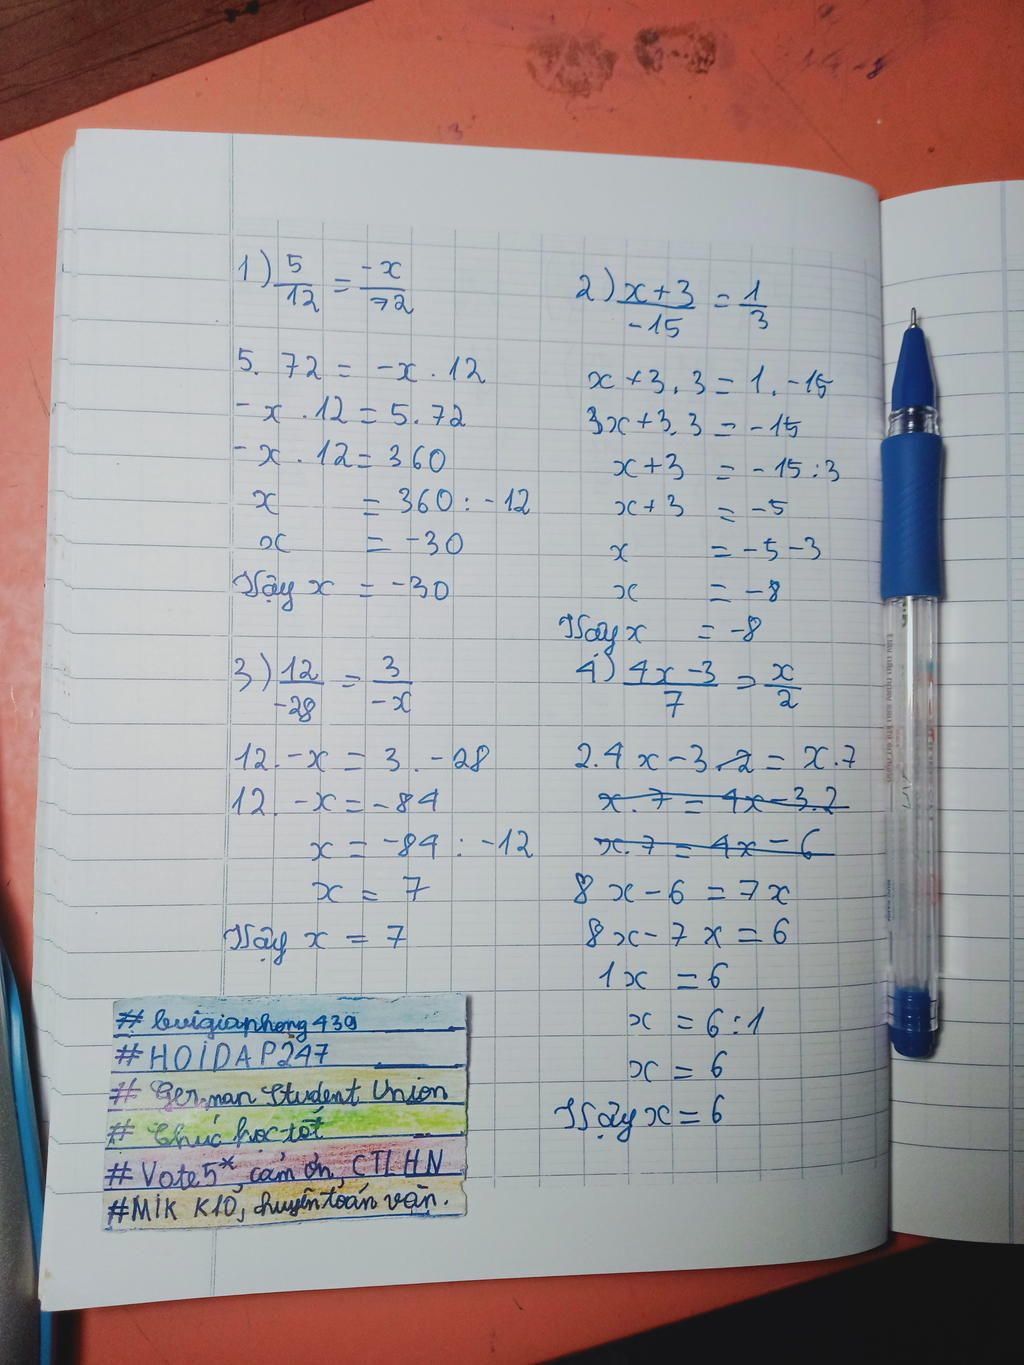 1) 5/12 = -x/72
5. 72 = -x . 12
-x . 12 = 5.72
-x . 12 = 360
x = 360 : -12
x = -30
Vậy x = -30
2) x+3/-15 = 1/3
x+3.3 = 1. -15
3x+3.3 = -15
x+3 = -15:3
x+3 = -5
x = -5-3
x = -8
Vậy x = -8
3) 12/-28 = 3/-x
12. -x = 3. -28
12. -x = -84
x = -84 : -12
x = 7
Vậy x = 7
4) 4x-3/7 = x/2
2.4x-3.2 = x.7
x.7 = 4x-3.2
x.7 = 4x-6
8x-6 = 7x
8x-7x = 6
1x = 6
x = 6:1
x = 6
Vậy x = 6
# buigiaphong439
#HOIDAP247
# German Student Union
# Chúc học tốt
# Vote 5*, cảm ơn, CTLHN
#MIK K10, chuyên toán văn.